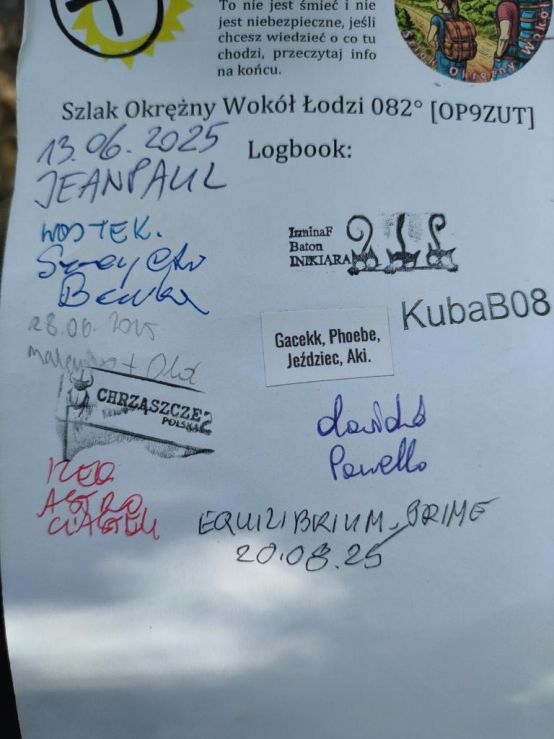 To nie jest śmieć i nie
jest niebezpieczne, jeśli
chcesz wiedzieć o co tu
chodzi, przeczytaj info
na końcu.
Szlak Okrężny
Szlak Okrężny Wokół Łodzi 082° [OP9ZUT]
Logbook:
13.06.2025
JEANPAUL
WOJTEK.
IzminaF
Baton
INIKIARA
KubaB08
28.06.2025
Gacekk, Phoebe,
Jeździec, Aki.
CHRZĄSZCZE
POLSKA
dawidd
Pawello
RED
ASTRO
CIASTEK
EQUILIBRIUM_PRIME
20.08.25